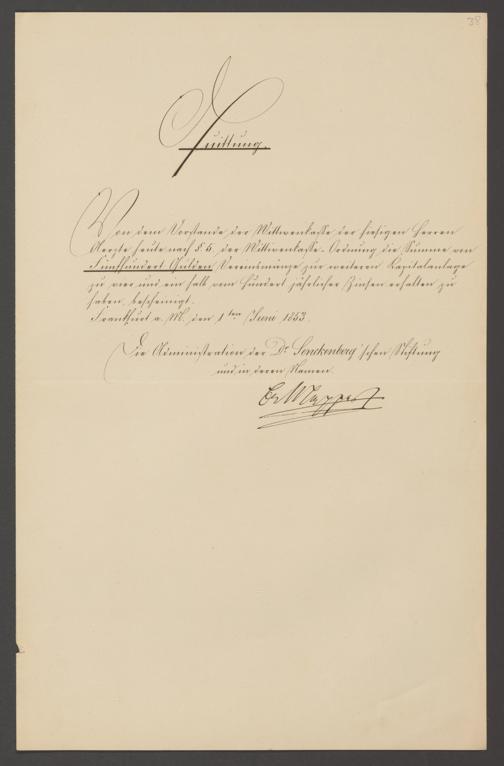 38
Quittung.
Von dem Vorstande der Wittwenkasse der hiesigen Herren
Aerzte heute nach § 5. der Wittwenkasse-Ordnung die Summe von
Fünfhundert Gulden Vereinsmünze zur weiteren Kapitalanlage
zu vier und ein halb vom Hundert jährlicher Zinsen erhalten zu
haben, bescheinigt.
Frankfurt a. M. den 1ten Juni 1853.
Die Administration der Dr. Senckenberg'schen Stiftung
und in deren Namen.
Dr Mappes